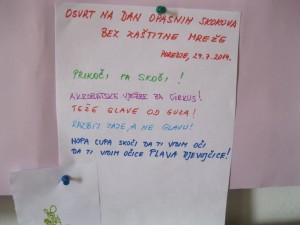 OSVRT NA DAN OPASNIH SKOKOVA
BEZ ZAŠTITNE MREŽE
29.7.2014.
PRIKOČI PA SKOČI!
AKROBATSKE VJEŽBE ZA CIRKUS!
TEŽE GLAVE OD
RAZBIJ JAJE, A NE GLAVU!
HOPA CUPA SKOČI DA TI VIDIM OČI
DA TI VIDIM OČICE PLAVA DJEVOJČICE!